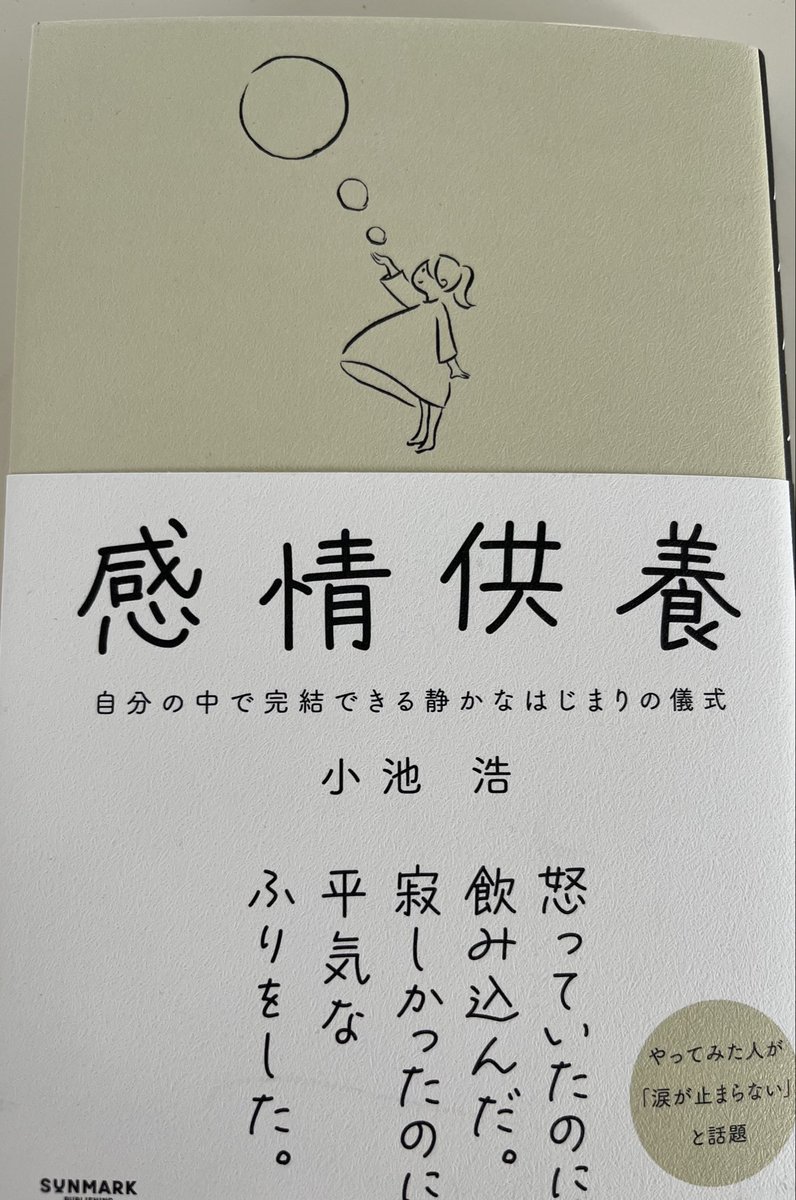 感情供養
自分の中で完結できる静かなはじまりの儀式
小池 浩
怒っていたのに
飲み込んだ。
寂しかったのに
平気な
ふりをした。
やってみた人が
「涙が止まらない」
と話題
SUNMARK
PUBLISHING